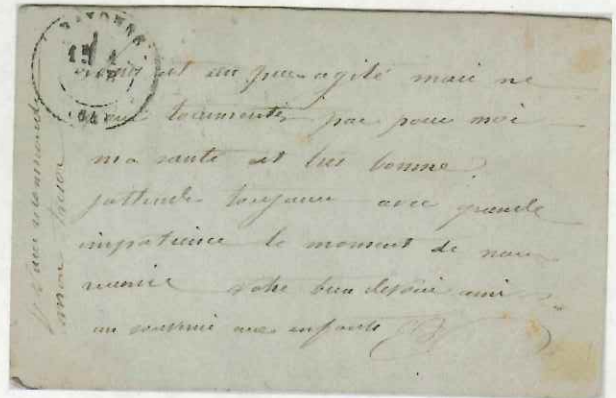 BAYONNE
15
(64)
est un peu agité mais ne
vous tourmentez pas pour moi
ma santé est bonne
j'attends toujours avec grande
impatience le moment de nous
réunir votre bien dévoué ami
un souvenir aux enfants
mon trésor